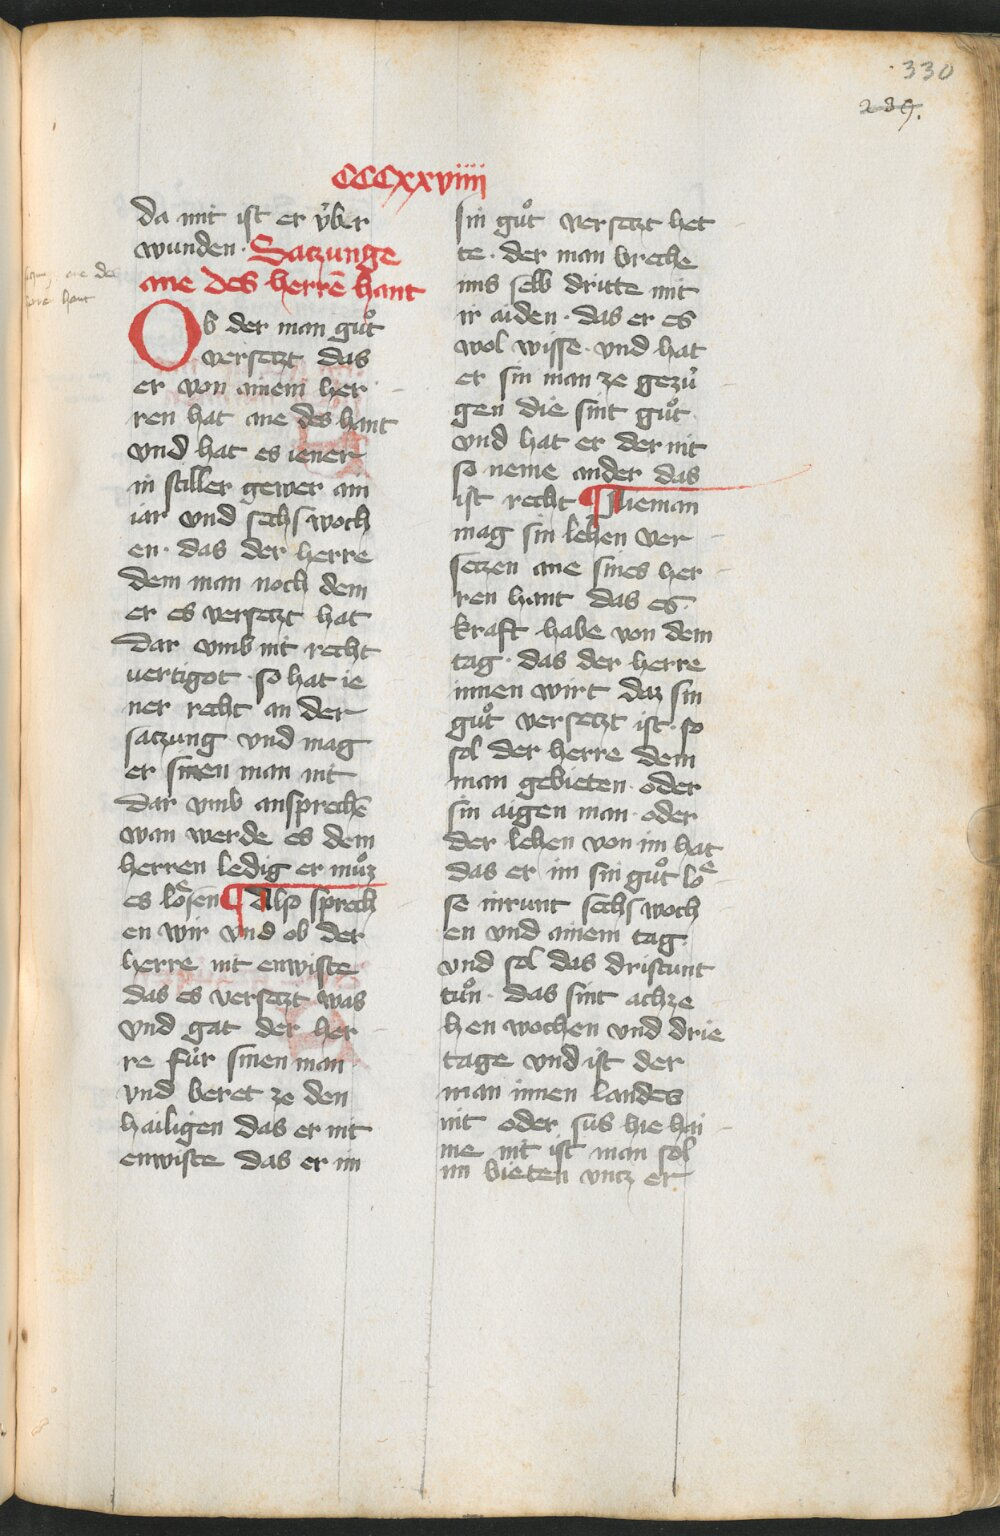 330
239.
CCCxxviiii
da mit ist er v̓ber
wunden · Satzunge
ane des herrē hant
Ob der man guͦt
versetzt das
er von ainem her
ren hat ane des hant
vnd hat es iener
in stiller gewer ain
iar vnd sechs woch
en · das der herre
dem man noch dem
er es versetzt hat
dar vmb nit recht
vertigot · so hat ie
ner recht an der
satzung vnd mag
er sinen man nit
dar vmb ansprechē
wan werde es dem
herren ledig er muͦz
es loͤsen ¶ Also sprech
en wir vnd ob der
herre nit enwiste
das es versetzt was
vnd gat der her
re fúr sinen man
vnd beret ze den
hailigen das er nit
enwiste das er im
sin guͦt versetzt het
te · der man breche
ims selb dritte mit
ir aiden · das er es
wol wisse · vnd hat
er sin man ze gezú
gen die sint guͦt ·
vnd hat er der nit
so neme ander das
ist recht ¶ Nieman
mag sin lehen ver
setzen ane sines her
ren hant das es
kraft habe von dem
tag · das der herre
innen wirt daz sin
guͦt versetzt ist · so
sol der herre dem
man gebieten · oder
sin aigen man · oder
der lehen von im hat
das er im sin guͦt loͤ
se inrunt sechs woch
en vnd ainem tag ·
vnd sol das dristunt
tuͦn · das sint achze
hen wochen vnd drie
tage vnd ist der
man innen landes
nit oder sus hie hai
me nit ist man sol
im bieten vntz er